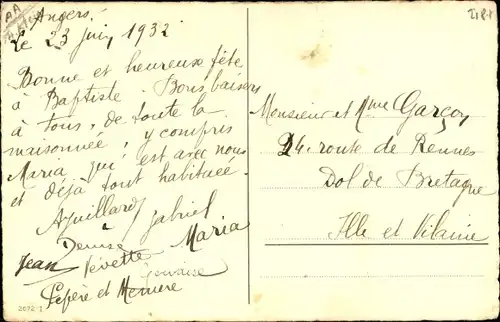 Angers.
Le 23 juin 1932
Bonne et heureuse fête
à Baptiste. Bons baisers
à tous, de toute la
maisonnée, y compris
Maria qui est avec nous
et déjà tout habituée.
Aguillard Gabriel
Denise Maria
Jean Vevette
Gervaise
Pépère et Mémère
2072-1
Monsieur et Mme Garçon
24. route de Rennes
Dol de Bretagne
Ille et Vilaine